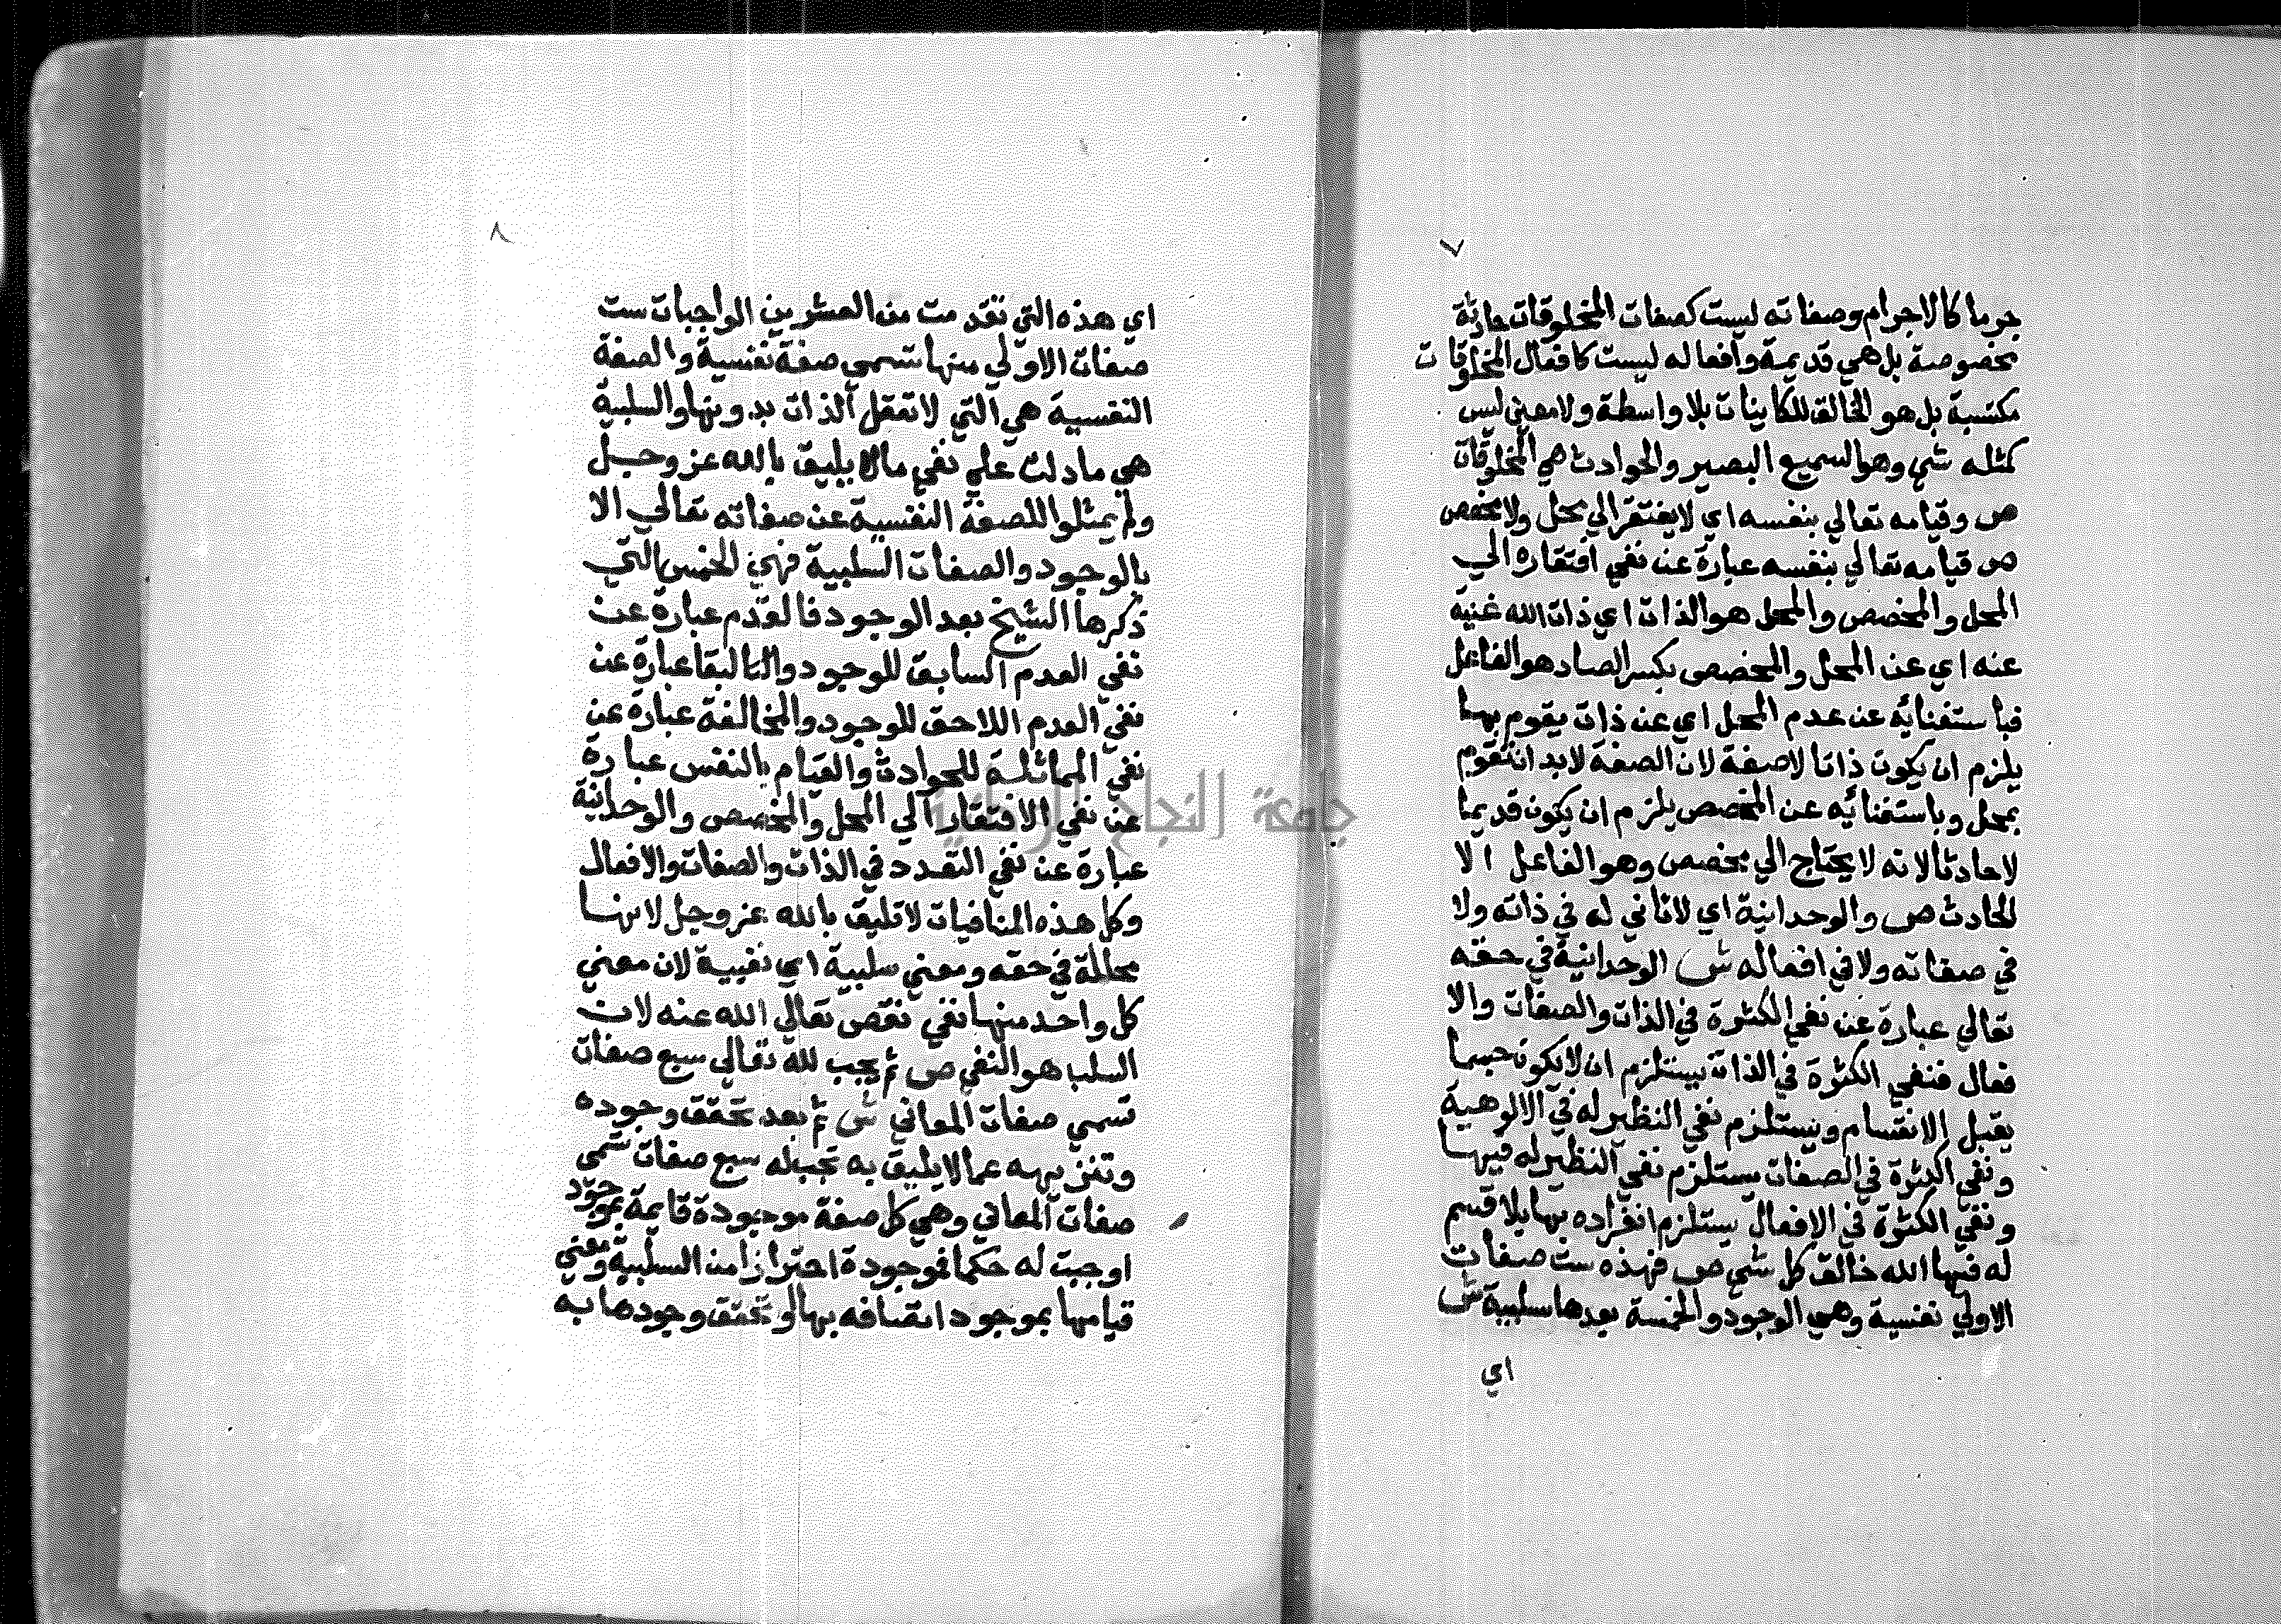 ٧
جرما كالاجرام وصفاته ليست كصفات المخلوقات حادثة
مخصوصة بل هي قديمة وافعاله ليست كافعال المخلوقات
مكتسبة بل هو الخالق للكاينات بلا واسطة ولا معين ليس
كمثله شي وهو السميع البصير والحوادث هي المخلوقات
ص وقيامه تعالي بنفسه اي لا يفتقر الي محل ولا مخصص
ص قيامه تعالي بنفسه عبارة عن نفي افتقاره الي
المحل والمخصص والمحل هو الذات اي ذات الله غنية
عنه اي عن المحل والمخصص بكسر الصاد هو الفاعل
فباستغنائه عن عدم المحل اي عن ذات يقوم بها
يلزم ان يكون ذاتا لا صفة لان الصفة لابد ان تقوم
بمحل وباستغنائه عن المخصص يلزم ان يكون قديما
لا حادثا لانه لا يحتاج الي مخصص وهو الفاعل الا
الحادث ص والوحدانية اي لا ثاني له في ذاته ولا
في صفاته ولا في افعاله ش الوحدانية في حقه
تعالي عبارة عن نفي الكثرة في الذات والصفات والا
فعال فنفي الكثرة في الذات يستلزم ان لا يكون جسما
يقبل الانقسام ويستلزم نفي النظير له في الالوهية
ونفي الكثرة في الصفات يستلزم نفي النظير له فيها
ونفي الكثرة في الافعال يستلزم انفراده بها بلا قسم
له فيها الله خالق كل شي ص فهذه ست صفات
الاولي نفسية وهي الوجود والخمسة بعدها سلبية ش
اي
٨
اي هذه التي تقدمت من العشرين الواجبات ست
صفات الاولي منها تسمي صفة نفسية والصفة
النفسية هي التي لا تعقل الذات بدونها والسلبية
هي ما دلت علي نفي مالا يليق بالله عز وجل
ولم يمثلوا للصفة النفسية عن صفاته تعالي الا
بالوجود والصفات السلبية فهي الخمس التي
ذكرها الشيخ بعد الوجود فالقدم عبارة عن
نفي العدم السابق للوجود والبقا عبارة عن
نفي العدم اللاحق للوجود والمخالفة عبارة عن
نفي المماثلة للحوادث والقيام بالنفس عبارة
عن نفي الافتقار الي المحل والمخصص والوحدانية
عبارة عن نفي التعدد في الذات والصفات والافعال
وكل هذه المنافيات لا تليق بالله عز وجل لانها
محالة في حقه ومعني سلبية اي نفيية لان معني
كل واحد منها نفي نقص تعالي الله عنه لان
السلب هو النفي ص ثم يجب لله تعالي سبع صفات
تسمي صفات المعاني ش ثم بعد تحقق وجوده
وتنزيهه عما لا يليق به تجب له سبع صفات تسمى
صفات المعاني وهي كل صفة موجودة قايمة بموجود
اوجبت له حكما فموجودة احترازا من السلبية ومعني
قيامها بموجود اتصافه بها وتحقق وجودها به
جامعة النجاح الوطنية